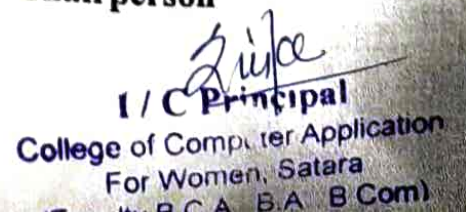 person
I / C Principal
College of Computer Application
For Women, Satara
B.C.A. B.A B Com)